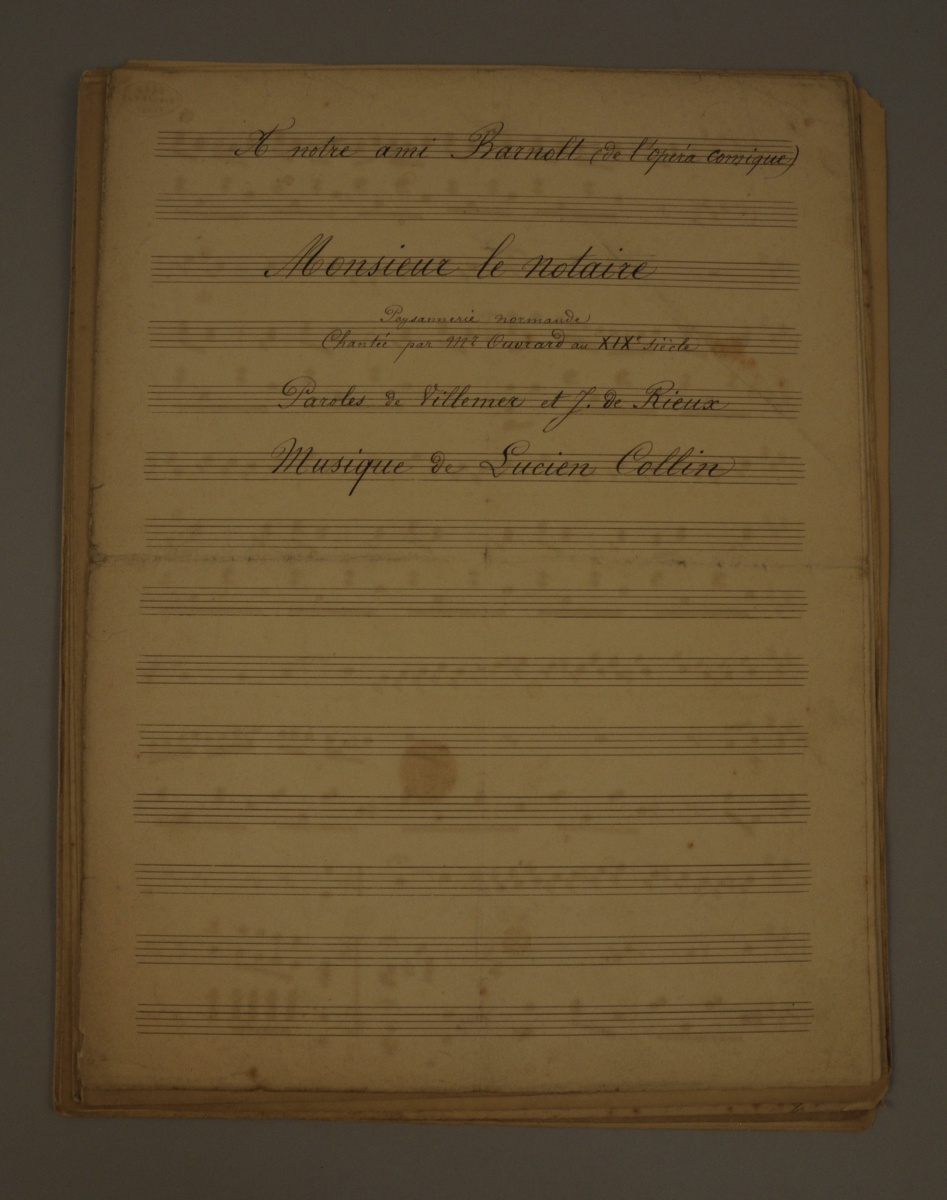 A notre ami Barnolt (de l'opéra comique)
Monsieur le notaire
Paysannerie normande
Chantée par Mr Ouvrard au XIXe Siècle
Paroles de Villemer et J. de Rieux
Musique de Lucien Collin